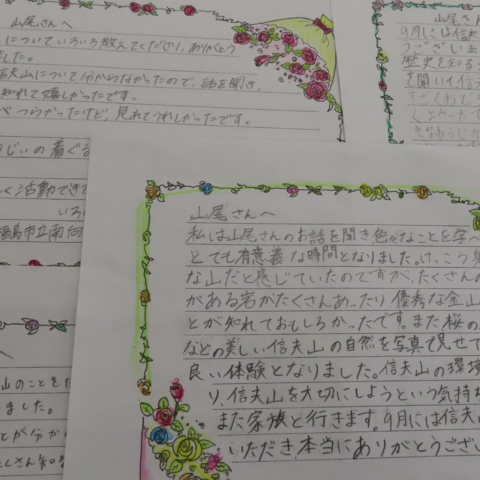 山尾さんへ
についていろいろ教えてくださり、ありがとう
ました。
信夫山について分からなかったので、話を聞き、
知れて嬉しかったです。
つらかったけど、見れてうれしかったです。
山尾さん
9月には信夫
うございま
歴史を知る
を聞いて信
じいの着ぐる
く活動でき
いろ
福島市立南向
山のことをた
りました。
とが分か
たくさん知
山尾さんへ
私は山尾さんのお話を聞き色々なことを学べ
とても有意義な時間となりました。けっこう
な山だと感じていたのですが、たくさんの
がある岩がたくさんあったり優秀な金山
とが知れておもしろかったです。また桜の
などの美しい信夫山の自然を写真で見せて
良い体験となりました。信夫山の環境
り、信夫山を大切にしようという気持ち
また家族と行きます。9月には信夫
いただき、本当にありがとうござい